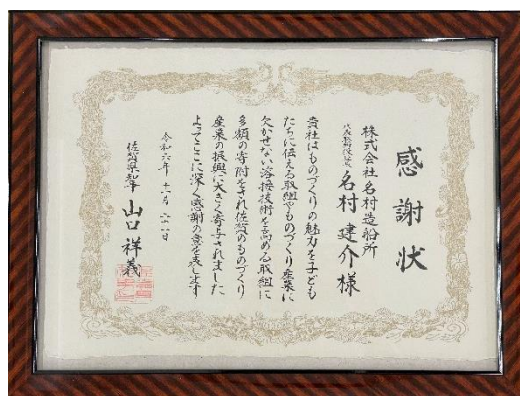 感謝状
株式会社名村造船所
代表取締役社長 名村建介様
貴社はものづくりの魅力を子ども
たちに伝える取組やものづくり産業に
欠かせない溶接技術を高める取組に
多額の寄附をされ佐賀のものづくり
産業の振興に大きく寄与されました
よってここに深く感謝の意を表します
令和六年
佐賀県知事 山口祥義